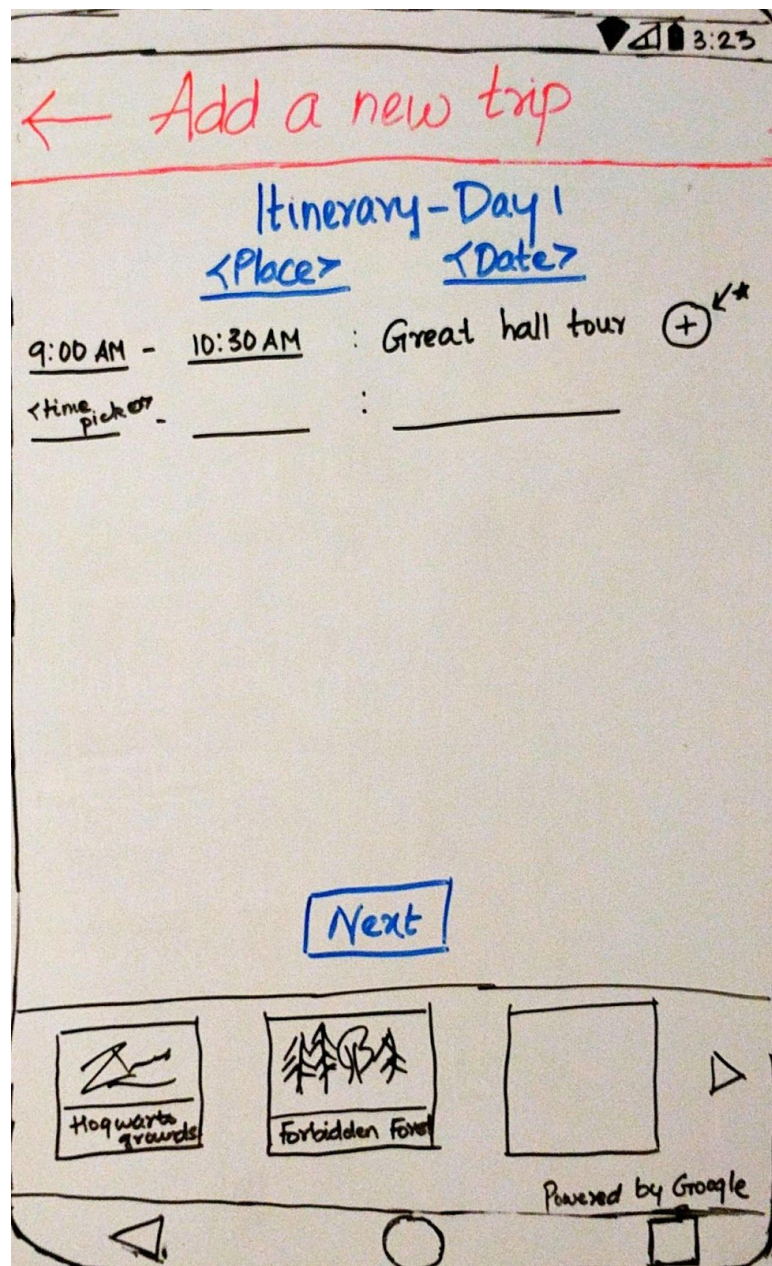 3:23
← Add a new trip
Itinerary - Day 1
<Place> <Date>
9:00 AM - 10:30 AM : Great hall tour +
<time
picker> - :
Next
Hogwarts
grounds
Forbidden Forest
Powered by Google